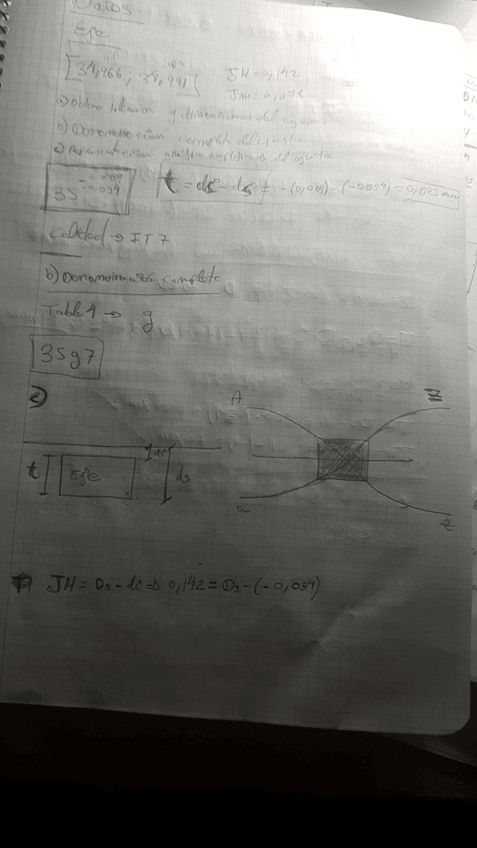 Datos
Eje
[34,966 ; 34,991] JH = 0,142
a) Obtener tolerancia y dimensiones del agujero
b) Denominación completa del ajuste
c) Representación gráfica del ajuste
35 -0,009 -0,034 t = ds - di = -(0,009) - (-0,034) = 0,025 mm
Calidad → IT7
b) Denominación completa
Tabla 4 → g
35g7
c)
A Z
t Eje di ds
a z
JH = Ds - di ⇒ 0,142 = Ds - (-0,034)